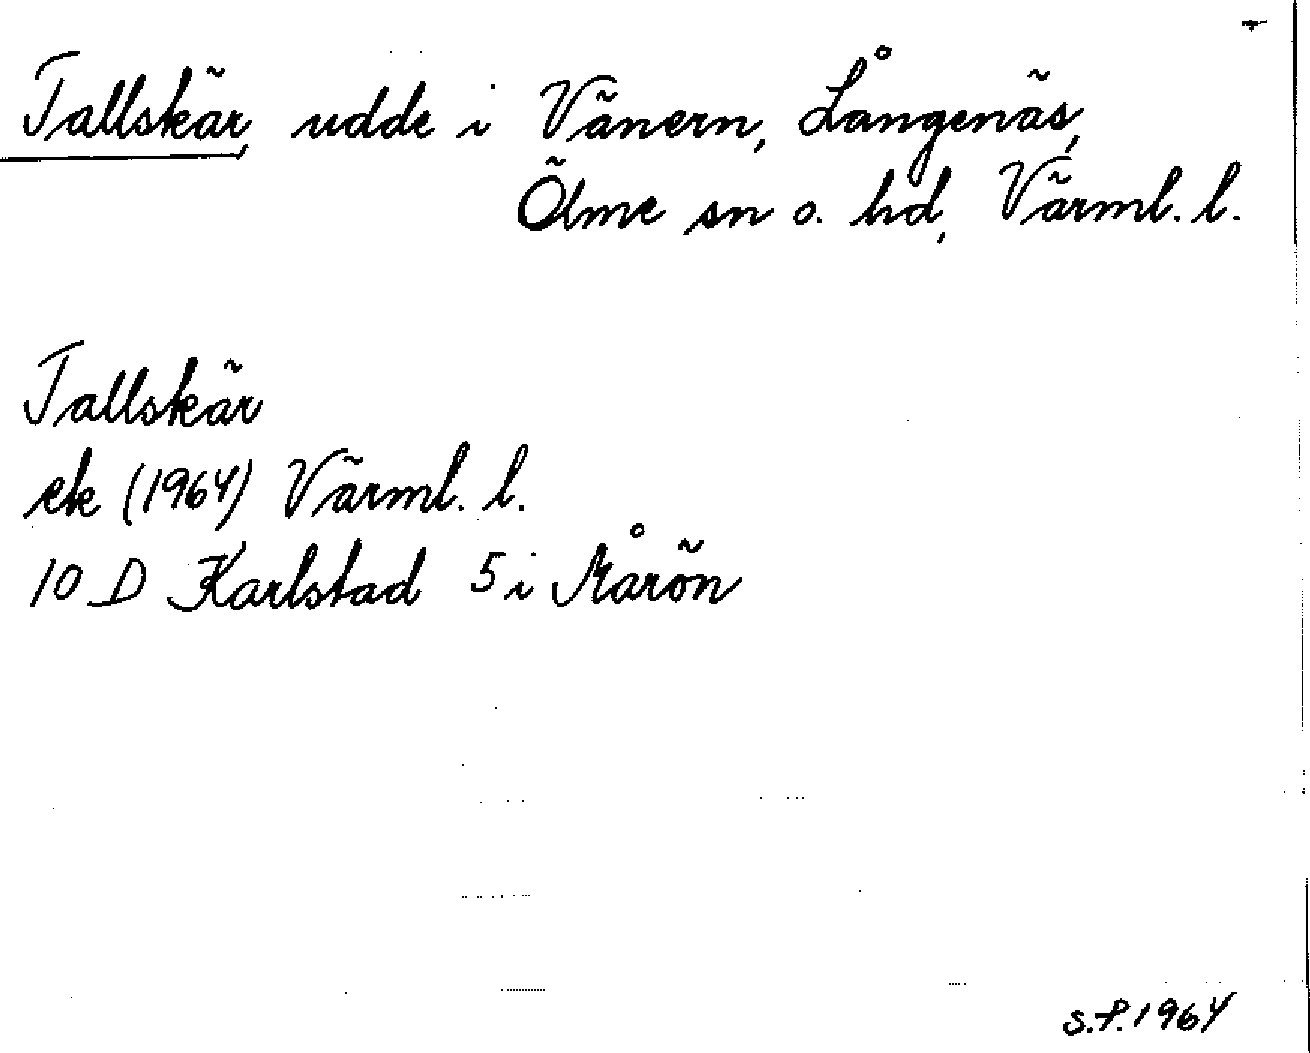 Tallskär, udde i Vänern, Långenäs,
Ölme sn o. hd, Värml. l.
Tallskär
ek (1964) Värml. l.
10 D Karlstad 5 i Årön
S.P. 1964